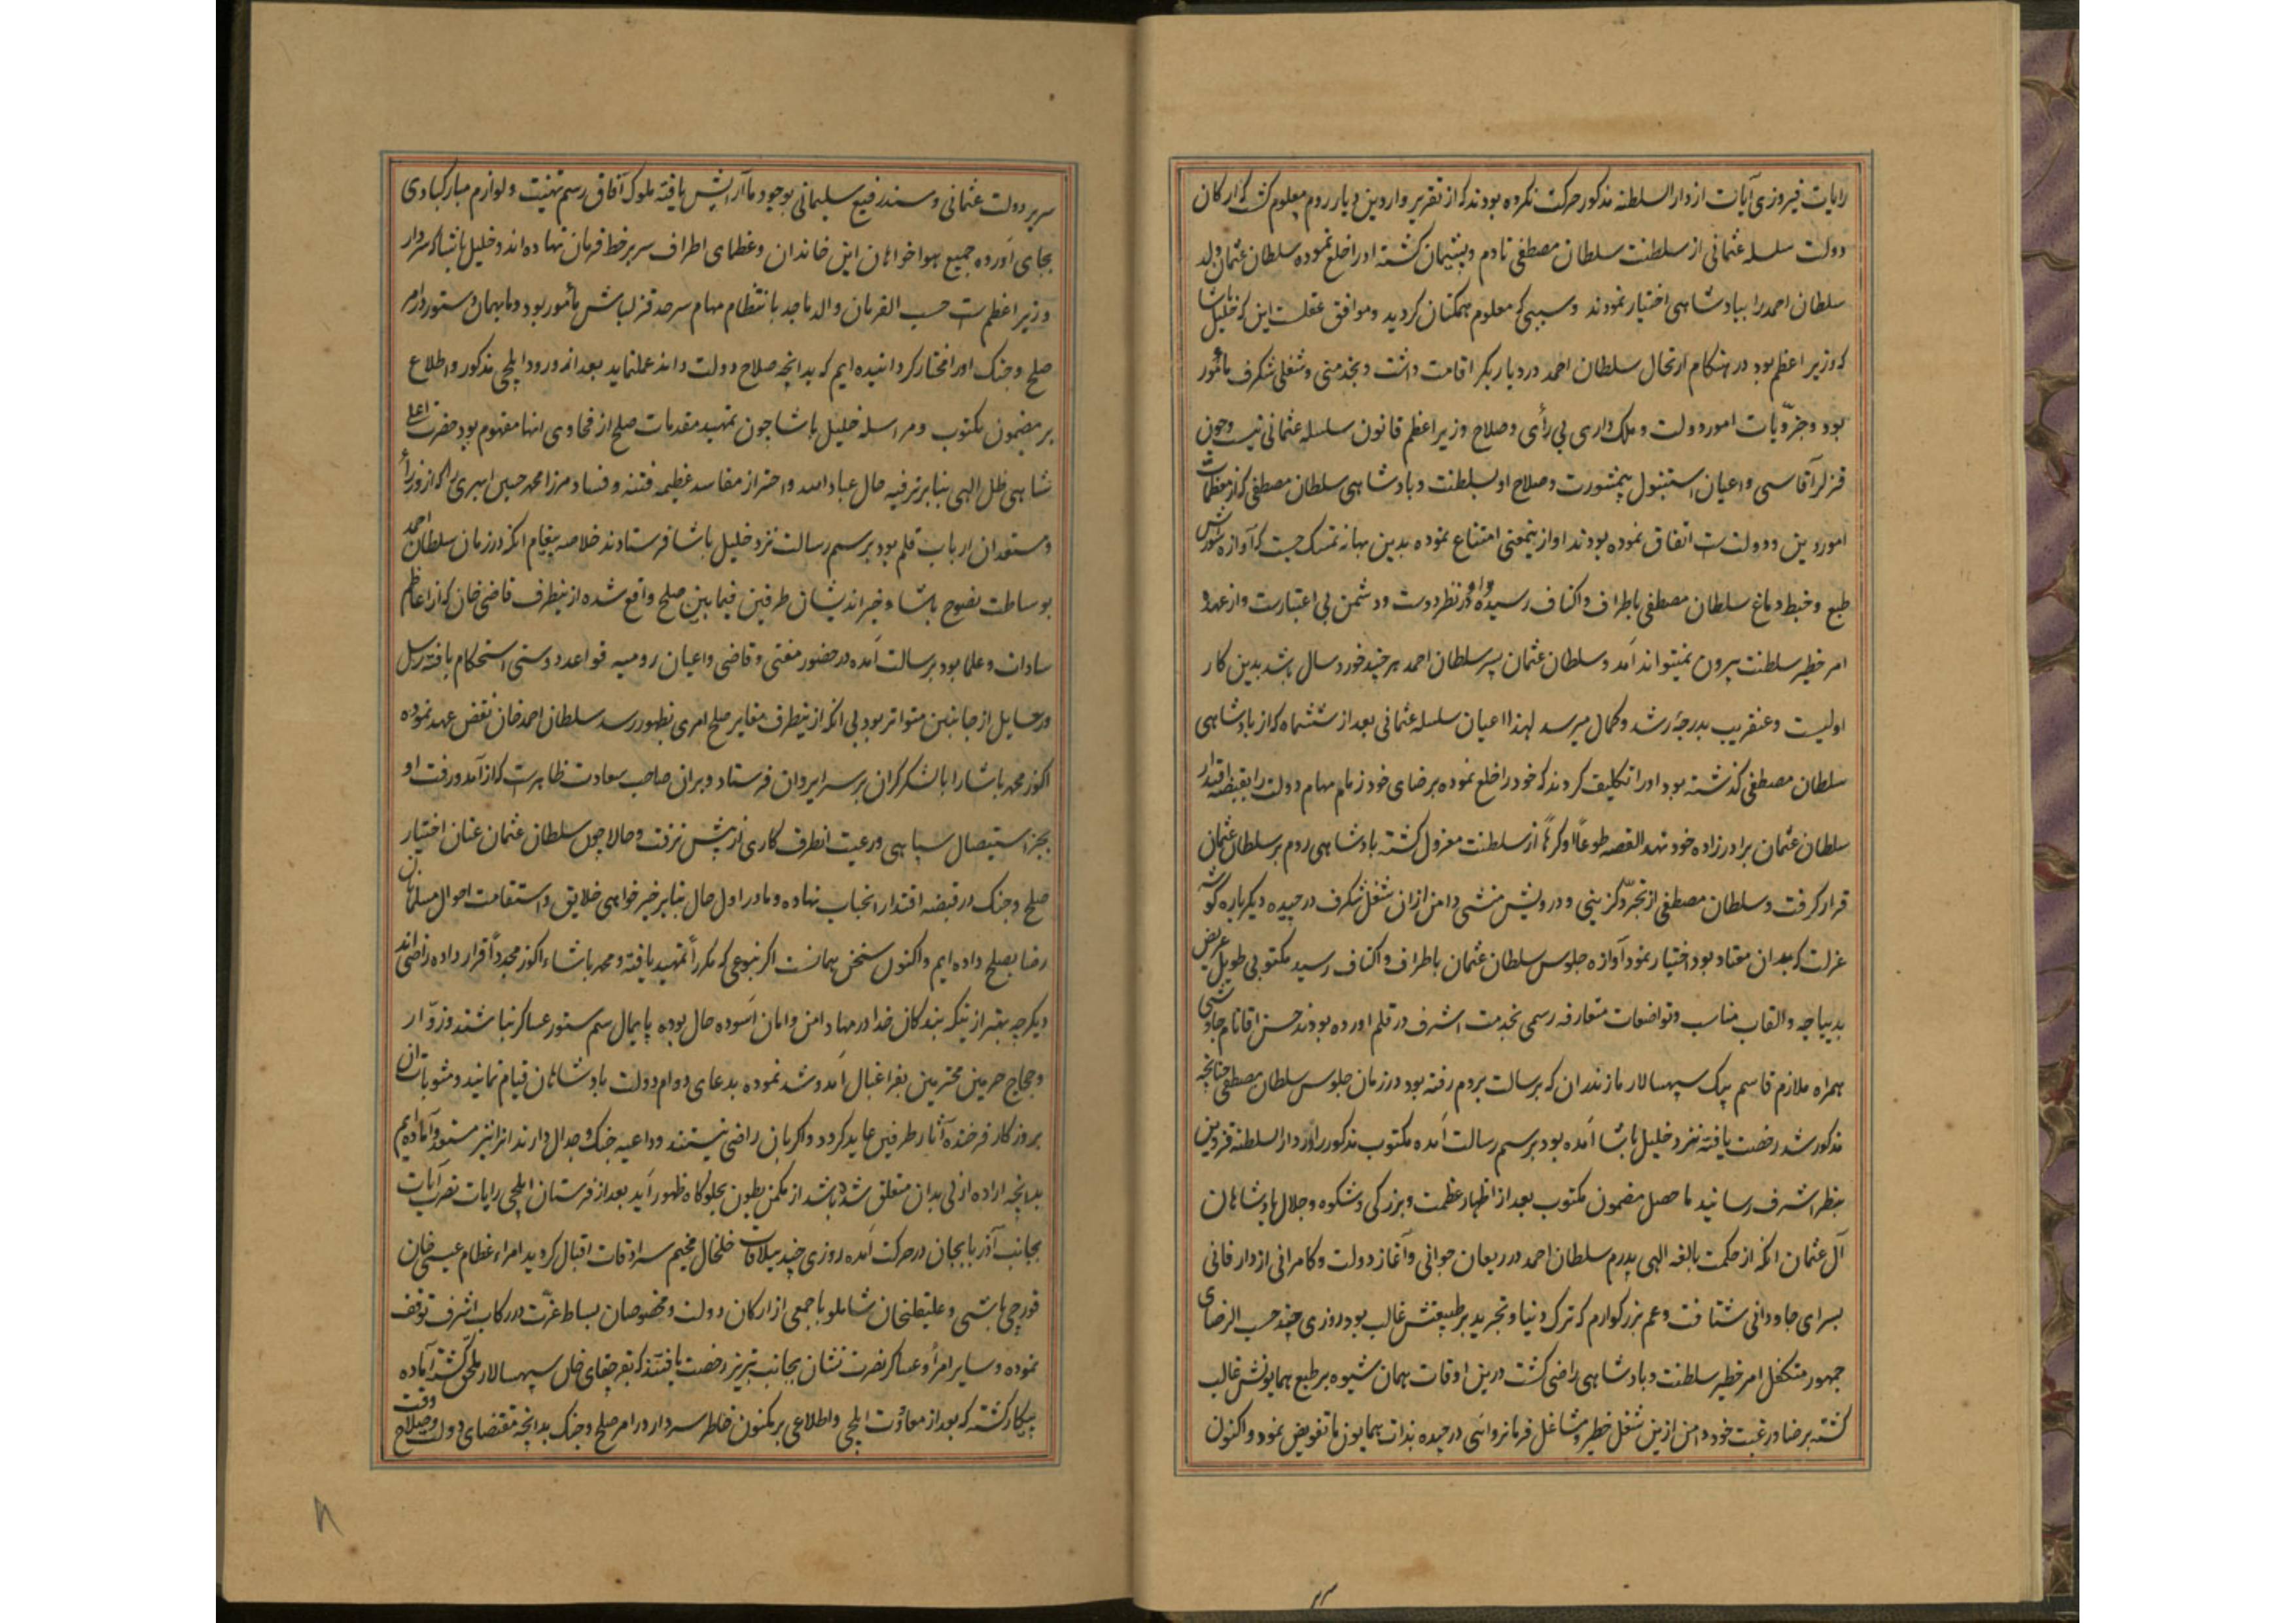 رایات فیروزی آیات از دار السلطنه مذکور حرکت نکرده بودند که از تقریر واردین دیار روم معلوم کشت که ارکان
دولت سلسله عثمانی از سلطنت سلطان مصطفی نادم و پشیمان کشته او را خلع نموده سلطان عثمان ولد
سلطان احمد را ببادشاهی اختیار نمودند و سببی که معلوم همکنان کردید و موافق عقلست این که خلیل باشا
که وزیر اعظم بود در هنکام ارتحال سلطان احمد در دیار بکر اقامت داشت و بخدمتی و شغلی شکرف مأمور
بود و جزویات امور دولت و ملک داری بی رأی و صلاح وزیر اعظم قانون سلسله عثمانی نیست و چون
قزلر آقاسی و اعیان استنبول بیمشورت و صلاح او بسلطنت و بادشاهی سلطان مصطفی که از معظمات
امور دین و دولت است اتفاق نموده بودند او از ینمعنی امتناع نموده بدین بهانه تمسک جست که آوازه شورش
طبع و خبط دماغ سلطان مصطفی باطراف و اکناف رسیده و او در نظر دوست و دشمن بی اعتبارست و از عهده
امر خطیر سلطنت بیرون نمیتواند آمد و سلطان عثمان پسر سلطان احمد هر چند خورد سال باشد بدین کار
اولیست و عنقریب بدرجه رشد و کمال میرسد لهذا اعیان سلسله عثمانی بعد از ششماه که از بادشاهی
سلطان مصطفی کذشته بود او را تکلیف کردند که خود را خلع نموده برضای خود زمام مهام دولت را بقبضه اقتدار
سلطان عثمان برادرزاده خود نهد القصه طوعًا او کرهًا از سلطنت معزول کشته بادشاهی روم بر سلطان عثمان
قرار کرفت و سلطان مصطفی از تجرّد کزینی و درویش منشی دامن ازان شغل شکرف در چیده دیکر باره کوشه
عزلت که بدان معتاد بود اختیار نمود آوازه جلوس سلطان عثمان باطراف و اکناف رسید مکتوبی طویل عریض
بدیباچه و القاب مناسب و تواضعات متعارفه رسمی بخدمت اشرف در قلم اورده بودند حسن اقا نام جاوشی
همراه ملازم قاسم بیک سپهسالار مازندران که برسالت بروم رفته بود در زمان جلوس سلطان مصطفی چنانچه
مذکور شد رخصت یافته نزد خلیل باشا آمده بود برسم رسالت آمده مکتوب مذکور را در دار السلطنه قزوین
بنظر اشرف رسانید ما حصل مضمون مکتوب بعد از اظهار عظمت و بزرکی و شکوه و جلال بادشاهان
آل عثمان انکه از حکمت بالغه الهی پدرم سلطان احمد در ریعان جوانی و آغاز دولت و کامرانی از دار فانی
بسرای جاودانی شتافت و عم بزرکوارم که ترک دنیا و تجرید بر طبیعتش غالب بود روزی چند حسب الرضای
جمهور متکفل امر خطیر سلطنت و بادشاهی راضی کشت درین اوقات همان شیوه بر طبع همایونش غالب
کشته برضا و رغبت خود دامن ازین شغل خطیر و مشاغل فرمانروائی در چیده بذات همایون ما تفویض نمود و اکنون
سریر دولت عثمانی و مسند رفیع سلیمانی بوجود ما آرایش یافته ملوک آفاق رسم تهنیت و لوازم مبارکبادی
بجای آورده جمیع هواخواهان این خاندان و عظمای اطراف سر بر خط فرمان نهاده اند و خلیل باشا که سردار
و وزیر اعظم است حسب الفرمان والد ماجد بانتظام مهام سرحد قزلباش مأمور بود و ما بهمان دستور در امر
صلح و جنک او را مختار کردانیده ایم که بدانچه صلاح دولت داند عملنماید بعد از ورود ایلچی مذکور و اطلاع
بر مضمون مکتوب و مراسله خلیل باشا چون تمهید مقدمات صلح از فحاوی انها مفهوم بود حضرت اعلی
شاهی ظل الهی بنابر ترفیه حال عباد الله و احتراز مفاسد عظیمه فتنه و فساد مرزا محمد حسین ابهری را که از وزراء
و مستعدان ارباب قلم بود برسم رسالت نزد خلیل باشا فرستادند خلاصه پیغام انکه در زمان سلطان احمد
بوساطت نصوح باشا و خیر اندیشان طرفین فیمابین صلح واقع شده از ینطرف قاضی خان که از اعاظم
سادات و علما بود برسالت آمده در حضور مفتی و قاضی و اعیان رومیه قواعد دوستی استحکام یافته رسل
و رسایل از جانبین متواتر بود بی انکه از ینطرف مغایر صلح امری بظهور رسد سلطان احمد خان نقض عهد نموده
اکوز محمد باشا را با لشکر کران بر سر ایروان فرستاد و بران صاحب سعادت ظاهرست که از آمد و رفت او
بجز استیصال سپاهی و رعیت انطرف کاری از پیش نرفت و حالا چون سلطان عثمان عنان اختیار
صلح و جنک در قبضه اقتدار انجناب نهاده و ما در اول حال بنابر خیر خواهی خلایق و استقامت احوال مسلمانان
رضا بصلح داده ایم و اکنون سخن همانست اکر بنوعی که مکررأ تمهید یافته و محمد باشاء اکوز مجددًا قرار داده راضی اند
دیکر چه بهتر از ینکه بندکان خدا در مهاد امن و امان آسوده حال بوده پایمال سم ستور عساکر نباشند و زوّار
و حجاج حرمین محترمین بفراغبال آمد و شد نموده بدعای دوام دولت بادشاهان قیام نمایند و مثوبات آن
بروزکار فرخنده آثار طرفین عاید کردد و اکر بان راضی نیستند و داعیه جنک و جدال دارند انرا نیز مستعد و آماده ایم
بدانچه اراده ازلی بدان متعلق شده باشد از مکمن بطون بجلوکاه ظهور آید بعد از فرستان ایلچی رایات نصرت آیات
بجانب آذربایجان در حرکت آمده روزی چند ییلاقات خلخال مخیم سرادقات اقبال کردید امراء عظام عیسی خان
قورچی باشی و علیقلیخان شاملو با جمعی از ارکان دولت و مخصوصان بساط عزّت در رکاب اشرف توقف
نموده و سایر امرأ و عساکر نصرت نشان بجانب تبریز رخصت یافتند که بقرچقای خان سپهسالار ملحق کشته آماده
پیکار کشته که بعد از معاوت ایلچی و اطلاعی بر مکنون خاطر سردار در امر صلح و جنک بدانچه مقتضای دولت و صلاح وقت